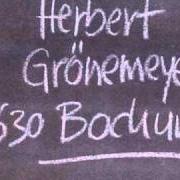 Herbert
Grönemeye
630 Bochu